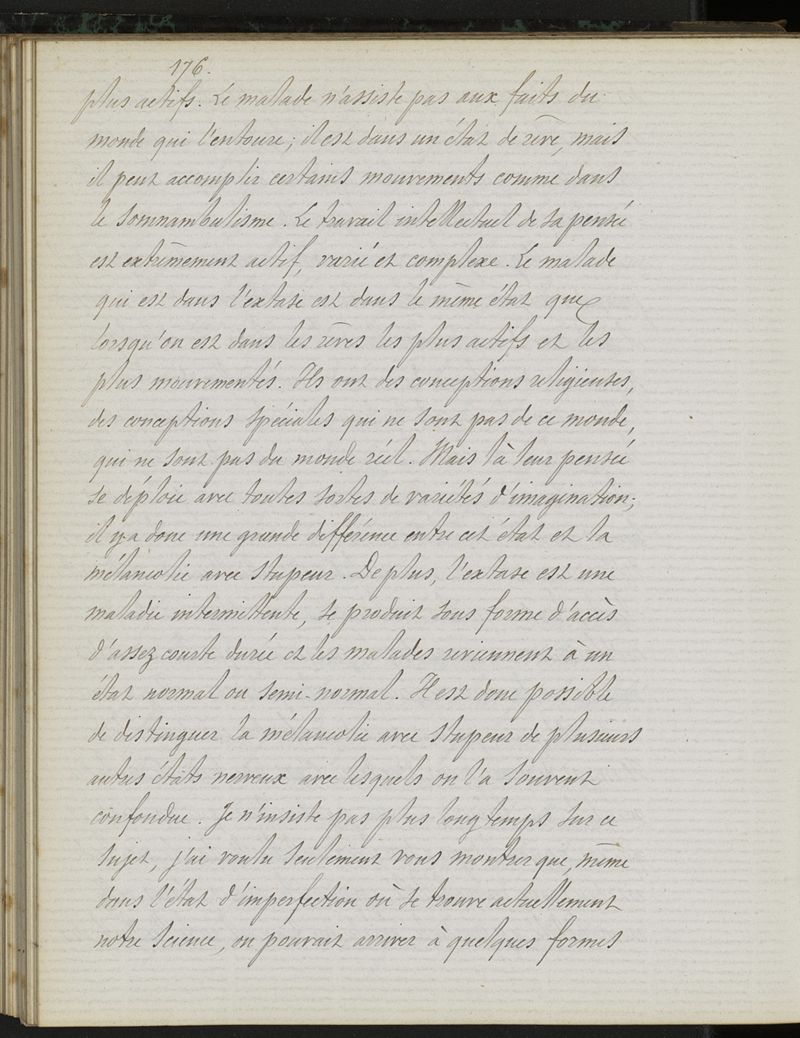 176.
plus actifs. Le malade n'assiste pas aux faits du
monde qui l'entoure; il est dans un état de rêve, mais
il peut accomplir certains mouvements comme dans
le somnambulisme. Le travail intellectuel de sa pensée
est extrêmement actif, varié et complexe. Le malade
qui est dans l'extase est dans le même état que
lorsqu'on est dans les rêves les plus actifs et les
plus mouvementés. Ils ont des conceptions religieuses,
des conceptions spéciales qui ne sont pas de ce monde,
qui ne sont pas du monde réel. Mais là leur pensée
se déploie avec toutes sortes de variétés d'imagination;
il y a donc une grande différence entre cet état et la
mélancolie avec stupeur. De plus, l'extase est une
maladie intermittente, se produit sous forme d'accès
d'assez courte durée et les malades reviennent à un
état normal ou semi-normal. Il est donc possible
de distinguer la mélancolie avec stupeur de plusieurs
autres états nerveux avec lesquels on l'a souvent
confondue. Je n'insiste pas plus longtemps sur ce
sujet, j'ai voulu seulement vous montrer que, même
dans l'état d'imperfection où se trouve actuellement
notre science, on pouvait arriver à quelques formes